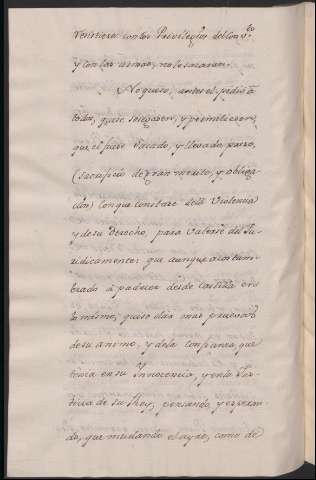 viniera con los Privilegios del Conv.to
y con las armas, no le sacaran.
No quiso, antes el pidió á
todos, que se sosegasen, y permitiesen,
que el fuese sacado, y llevado preso,
(sacrificio de gran merito, y obliga-
cion) con que constase de la Violencia
y de su Derecho, para valerse del Ju-
ridicamente; que aunque acostum-
brado á padecer desde Castilla en
lo mismo, quiso dar mas pruevas
de su animo, y de la confianza, que
tenia en su Innocencia, y en la Jus-
ticia de su Rey, pensando, y esperan-
do, que mudando el ayre, como de